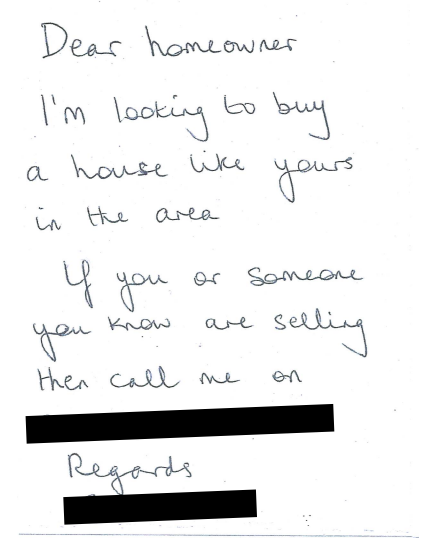 Dear homeowner
I'm looking to buy
a house like yours
in the area
If you or someone
you know are selling
then call me on
Regards